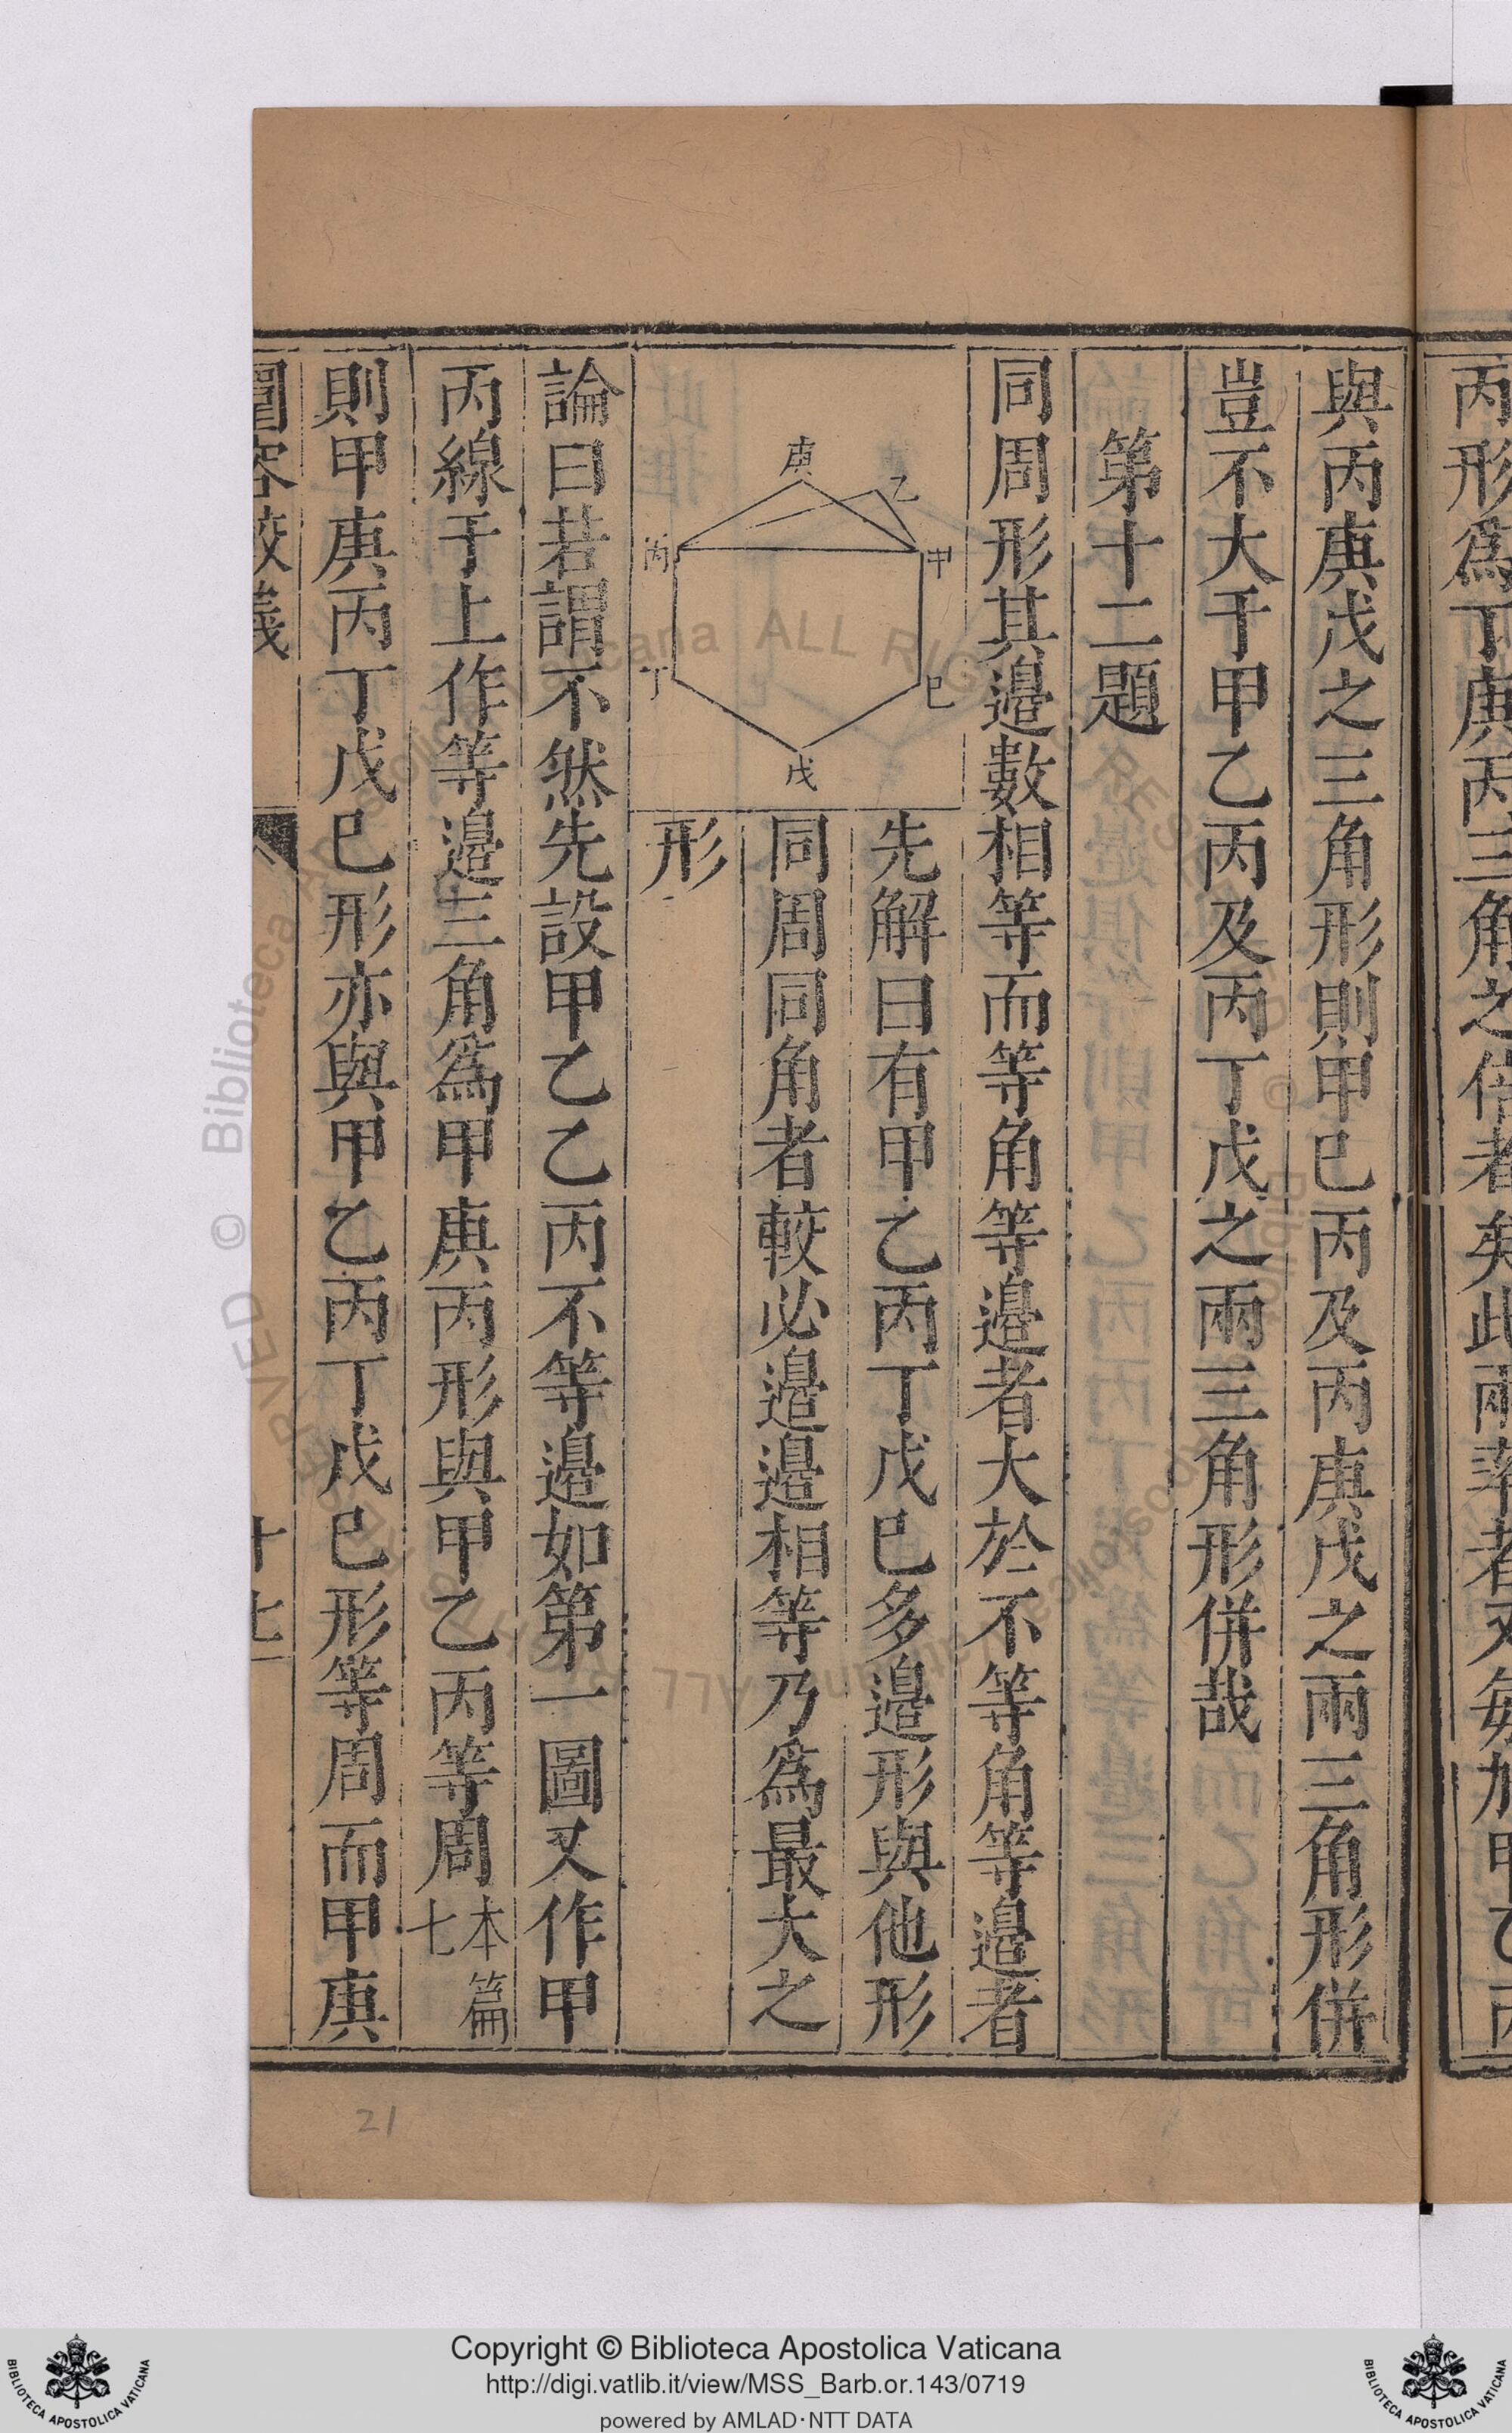 丙形爲丁庚丙三角之倍者矣此兩率者又每加甲乙丙
與丙庚戊之三角形則甲巳丙及丙庚戊之兩三角形併
豈不大于甲乙丙及丙丁戊之兩三角形併哉
第十二題
同周形其邉數相等而等角等邉者大於不等角等邉者
庚
乙
丙
甲
丁
巳
戊
先解曰有甲乙丙丁戊巳多邉形與他形
同周同角者較必邉邉相等乃爲最大之
形
論曰若謂不然先設甲乙乙丙不等邉如第一圖又作甲
丙線于上作等邉三角爲甲庚丙形與甲乙丙等周本篇七
則甲庚丙丁戊巳形亦與甲乙丙丁戊巳形等周而甲庚
圜容較義
十七
21
Copyright © Biblioteca Apostolica Vaticana
http://digi.vatlib.it/view/MSS_Barb.or.143/0719
powered by AMLAD·NTT DATA
BIBLIOTECA APOSTOLICA VATICANA
BIBLIOTECA APOSTOLICA VATICANA